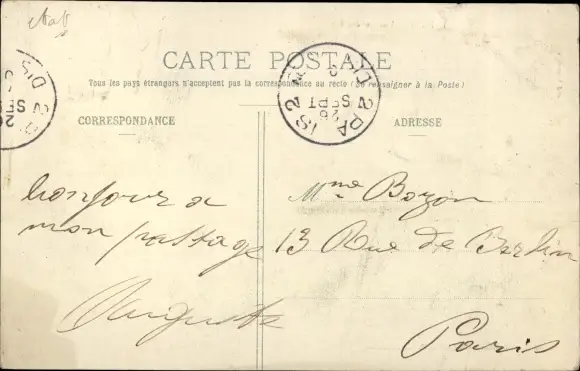 CARTE POSTALE
Tous les pays étrangers n'acceptent pas la correspondance au recto (Se renseigner à la Poste)
CORRESPONDANCE
ADRESSE
bonjour a
mon passage
Auguste
Mme Bozon
13 Rue de Berlin
Paris
PARIS 2
26
SEPT